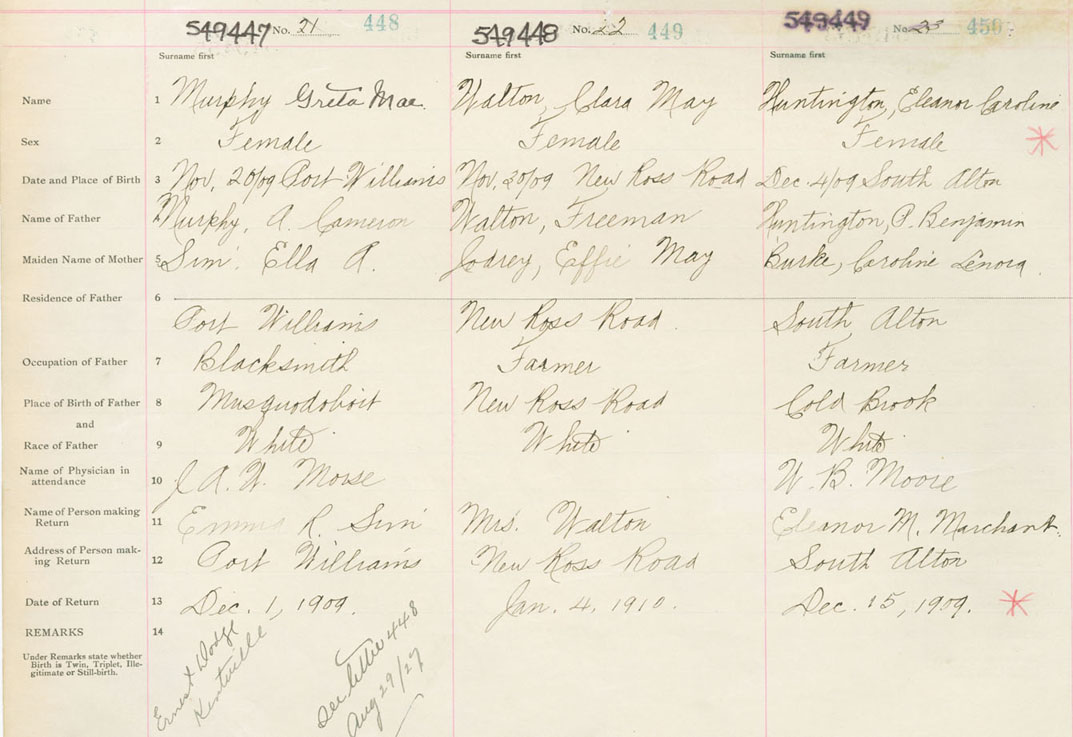 549447 No. 21 448 549448 No. 22 449 549449 No. 23 450
Surname first Surname first Surname first
Name 1 Murphy Greta Mae. Walton, Clara May Huntington, Eleanor Caroline
Sex 2 Female Female Female
Date and Place of Birth 3 Nov, 20/09 Port Williams Nov, 20/09 New Ross Road Dec. 4/09 South Alton
Name of Father 4 Murphy, A. Cameron Walton, Freeman Huntington, P. Benjamin
Maiden Name of Mother 5 Sim, Ella A. Jodrey, Effie May Burke, Caroline Lenora.
Residence of Father 6
Port Williams New Ross Road. South Alton
Occupation of Father 7 Blacksmith Farmer Farmer
Place of Birth of Father 8 Musquodoboit New Ross Road Cold Brook
and
Race of Father 9 White White White
Name of Physician in
attendance 10 A. W. Morse W. B. Moore
Name of Person making
Return 11 Emma R. Sim Mrs. Walton Eleanor M. Marchant.
Address of Person mak-
ing Return 12 Port Williams New Ross Road South Alton
Date of Return 13 Dec. 1, 1909. Jan. 4, 1910. Dec. 15, 1909.
REMARKS 14
Under Remarks state whether
Birth is Twin, Triplet, Ille-
gitimate or Still-birth.
Ernest Dodge
Kentville
See letter 448
Aug 29/27